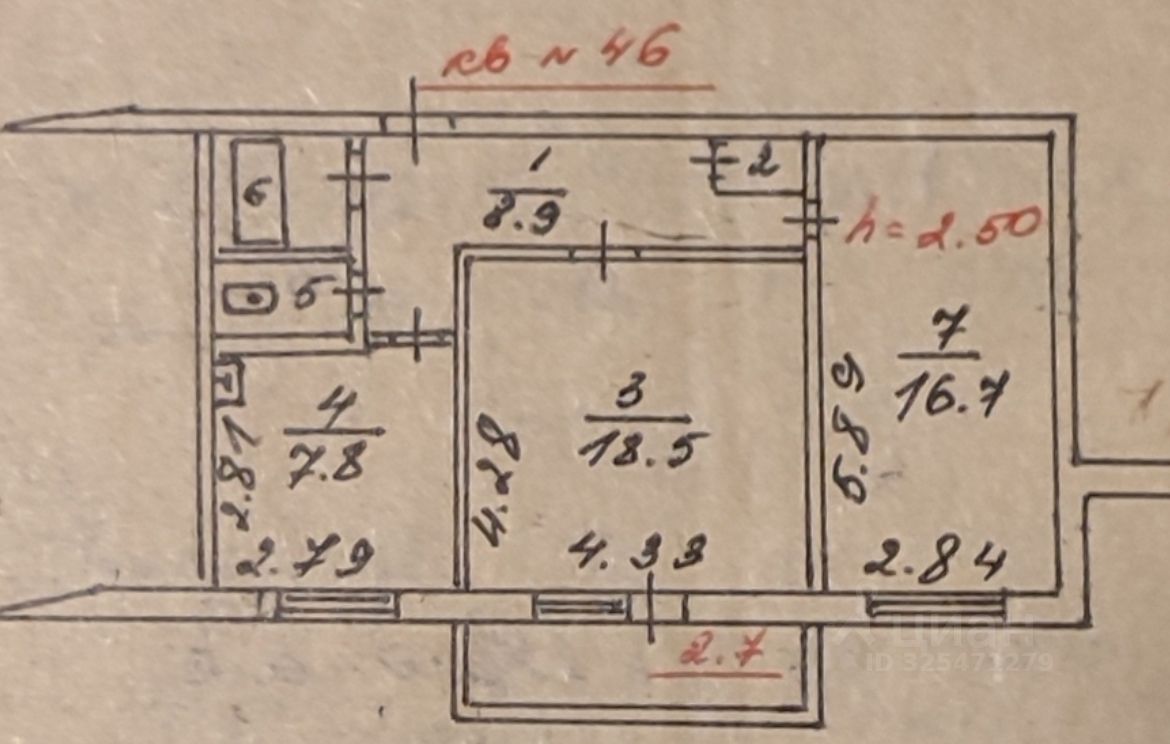 кв № 46
6
1
8.9
2
h = 2.50
5
7
16.7
4
7.8
3
18.5
2.81
4.28
5.89
2.79
4.33
2.84
2.7
циан
ID 325472279